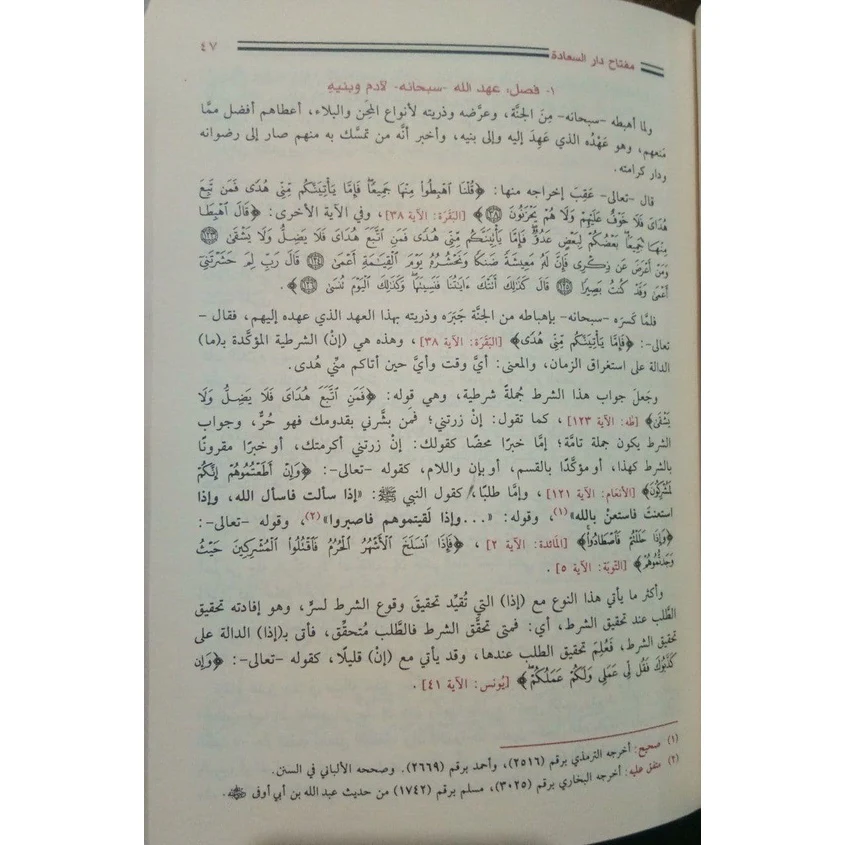 مفتاح دار السعادة ٤٧
١- فصل: عهد الله -سبحانه- لآدم وبنيهِ
ولما أهبطه -سبحانه- مِنَ الجنَّة، وعرَّضه وذريته لأنواع المِحَن والبلاء، أعطاهم أفضل ممَّا
مَنعهم، وهو عَهْدُه الذي عَهِدَ إليه وإلى بنيه، وأخبر أنَّه من تمسَّك به منهم صار إلى رضوانه
ودار كرامته.
قال -تعالى- عَقِبَ إخراجه منها: ﴿قُلْنَا ٱهْبِطُوا۟ مِنْهَا جَمِيعًا ۖ فَإِمَّا يَأْتِيَنَّكُم مِّنِّى هُدًى فَمَن تَبِعَ
هُدَاىَ فَلَا خَوْفٌ عَلَيْهِمْ وَلَا هُمْ يَحْزَنُونَ ٣٨﴾ [البَقَرَة: الآية ٣٨]، وفي الآية الأخرى: ﴿قَالَ ٱهْبِطَا
مِنْهَا جَمِيعًا ۖ بَعْضُكُمْ لِبَعْضٍ عَدُوٌّ ۖ فَإِمَّا يَأْتِيَنَّكُم مِّنِّى هُدًى فَمَنِ ٱتَّبَعَ هُدَاىَ فَلَا يَضِلُّ وَلَا يَشْقَىٰ ١٢٣
وَمَنْ أَعْرَضَ عَن ذِكْرِى فَإِنَّ لَهُۥ مَعِيشَةً ضَنكًا وَنَحْشُرُهُۥ يَوْمَ ٱلْقِيَـٰمَةِ أَعْمَىٰ ١٢٤ قَالَ رَبِّ لِمَ حَشَرْتَنِىٓ
أَعْمَىٰ وَقَدْ كُنتُ بَصِيرًا ١٢٥ قَالَ كَذَٰلِكَ أَتَتْكَ ءَايَـٰتُنَا فَنَسِيتَهَا ۖ وَكَذَٰلِكَ ٱلْيَوْمَ تُنسَىٰ ١٢٦﴾.
فلمَّا كَسرَه -سبحانه- بإهباطه من الجنَّة جَبَرَه وذريته بهذا العهد الذي عهده إليهم، فقال -
تعالى-: ﴿فَإِمَّا يَأْتِيَنَّكُم مِّنِّى هُدًى﴾ [البَقَرَة: الآية ٣٨]، وهذه هي (إنْ) الشرطية المؤكَّدة بـ(ما)
الدالة على استغراق الزمان، والمعنى: أيَّ وقت وأيَّ حين أتاكم منِّي هُدى.
وجَعلَ جواب هذا الشرط جُملةً شرطية، وهي قوله: ﴿فَمَنِ ٱتَّبَعَ هُدَاىَ فَلَا يَضِلُّ وَلَا
يَشْقَىٰ﴾ [طه: الآية ١٢٣]، كما تقول: إنْ زرتني؛ فمن بشَّرني بقدومك فهو حُرٌّ، وجواب
الشرط يكون جملة تامَّة؛ إمَّا خبرًا محضًا كقولك: إنْ زرتني أكرمتك، أو خبرًا مقرونًا
بالشرط كهذا، أو مؤكَّدًا بالقسم، أو بإن واللام، كقوله -تعالى-: ﴿وَإِنْ أَطَعْتُمُوهُمْ إِنَّكُمْ
لَمُشْرِكُونَ﴾ [الأنعَام: الآية ١٢١]، وإمَّا طلبًا، كقول النبي ﷺ: «إذا سألت فاسأل الله، وإذا
استعنتَ فاستعنْ بالله»(١)، وقوله: «...وإذا لَقيتموهم فاصبروا»(٢)، وقوله -تعالى-:
﴿وَإِذَا حَلَلْتُمْ فَٱصْطَادُوا۟﴾ [المَائدة: الآية ٢]، ﴿فَإِذَا ٱنسَلَخَ ٱلْأَشْهُرُ ٱلْحُرُمُ فَٱقْتُلُوا۟ ٱلْمُشْرِكِينَ حَيْثُ
وَجَدتُّمُوهُمْ﴾ [التّوبَة: الآية ٥].
وأكثر ما يأتي هذا النوع مع (إذا) التي تُفيِّد تحقيقَ وقوع الشرط لسرٍّ، وهو إفادته تحقيق
الطَّلب عند تحقيق الشرط، أي: فمتى تحقَّق الشرط فالطَّلب مُتحقِّق، فأتى بـ(إذا) الدالة على
تحقيق الشرط، فَعُلِمَ تحقيق الطلب عندها، وقد يأتي مع (إنْ) قليلًا، كقوله -تعالى-: ﴿وَإِن
كَذَّبُوكَ فَقُل لِّى عَمَلِى وَلَكُمْ عَمَلُكُمْ ۖ﴾ [يُونس: الآية ٤١].
(١) صحيح: أخرجه الترمذي برقم (٢٥١٦)، وأحمد برقم (٢٦٦٩). وصححه الألباني في السنن.
(٢) متفق عليه: أخرجه البخاري برقم (٣٠٢٥)، مسلم برقم (١٧٤٢) من حديث عبد الله بن أبي أوفى